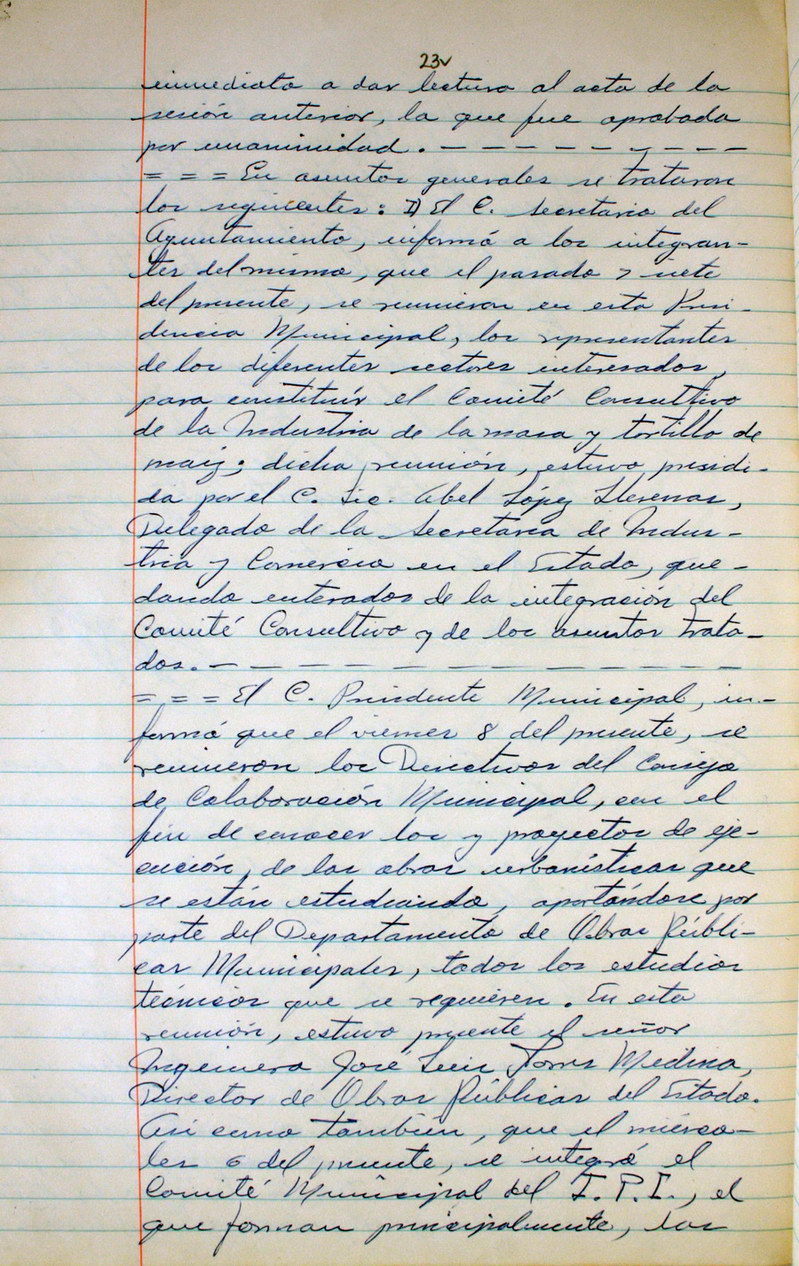 23v
inmediato a dar lectura al acta de la
sesión anterior, la que fue aprobada
por unanimidad. — — — — — — — — —
= = = En asuntos generales se trataron
los siguientes: I) El C. Secretario del
Ayuntamiento, informó a los integran-
tes del mismo, que el pasado 7 siete
del presente, se reunieron en esta Presi-
dencia Municipal, los representantes
de los diferentes sectores interesados,
para constituír el Comité Consultivo
de la Industria de la masa y tortilla de
maíz; dicha reunión, estuvo presidi-
da por el C. Lic. Abel López Llerenas,
Delegado de la Secretaría de Indus-
tria y Comercio en el Estado, que-
dando enterados de la integración del
Comité Consultivo y de los asuntos trata-
dos. — — — — — — — — — — — — —
= = = El C. Presidente Municipal, in-
formó que el viernes 8 del presente, se
reunieron los Directivos del Consejo
de Colaboración Municipal, con el
fin de conocer los y proyectos de eje-
cución, de las obras urbanísticas que
se están estudiando, aportándose por
parte del Departamento de Obras Públi-
cas Municipales, todos los estudios
técnicos que se requieren. En esta
reunión, estuvo presente el señor
Ingeniero José Luis Torres Medina,
Director de Obras Públicas del Estado.
Así como también, que el miérco-
les 6 del presente, se integró el
Comité Municipal del I.P.I., el
que forman principalmente, las